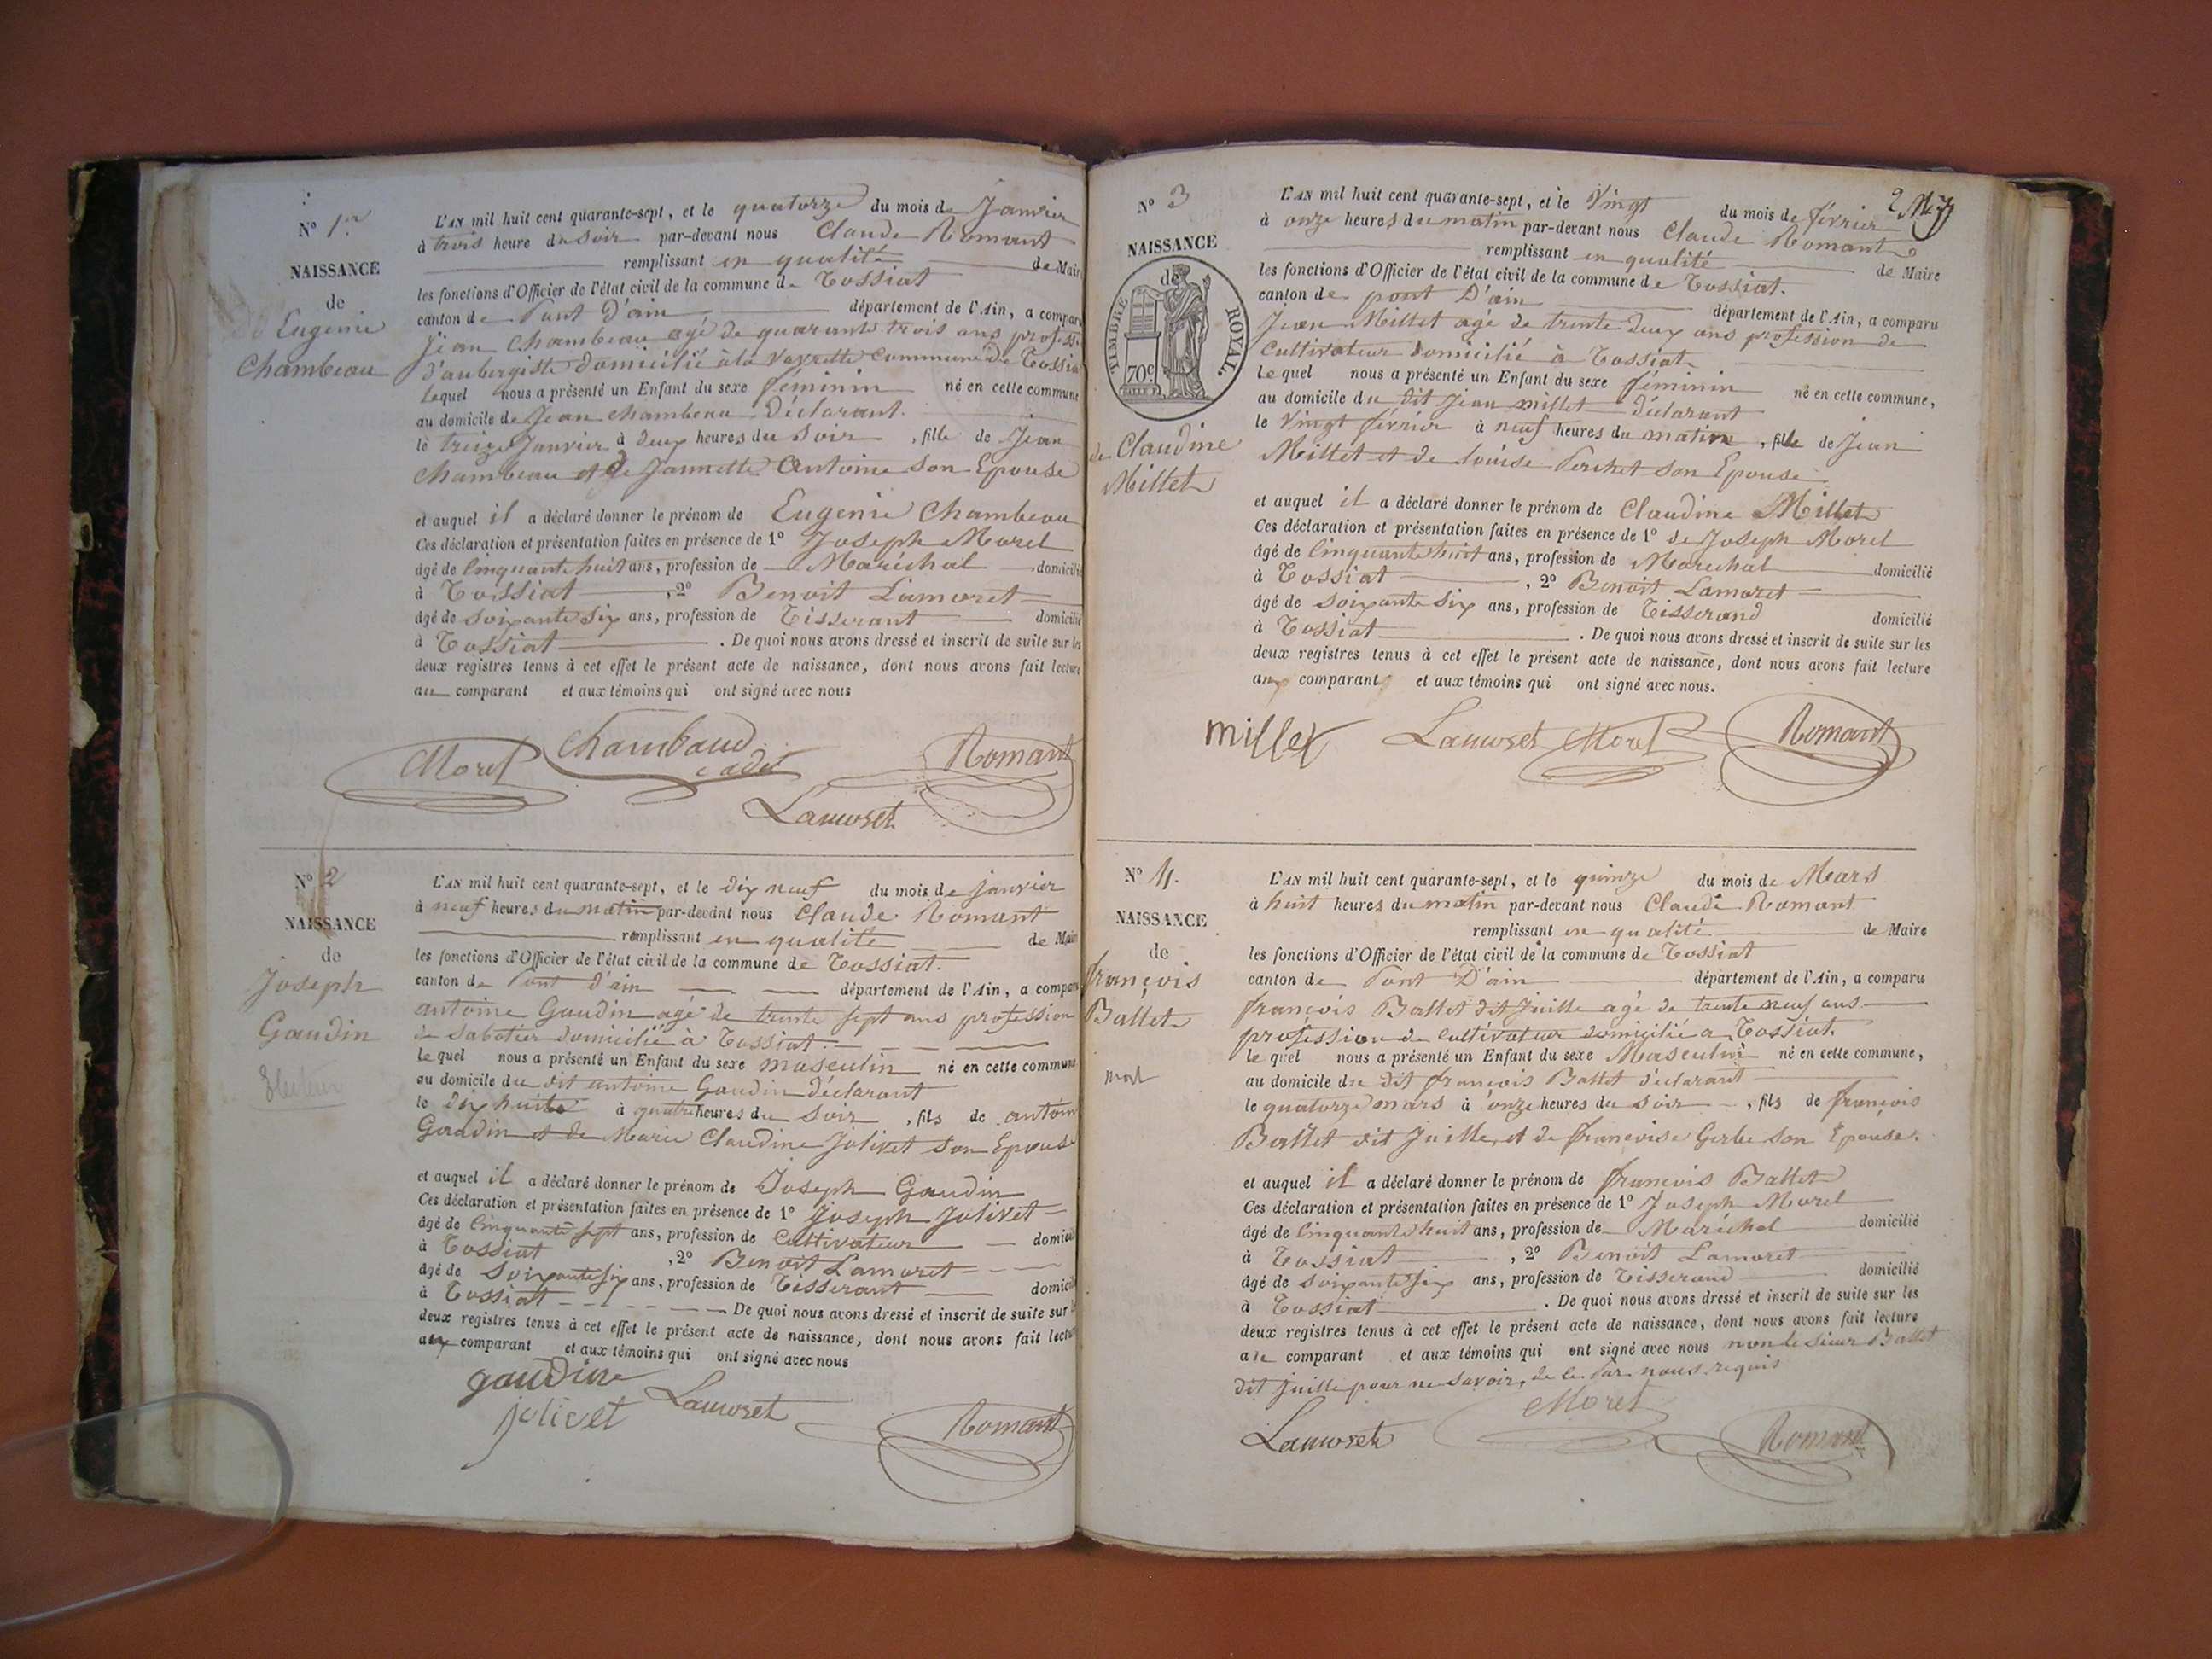 N° 1er
NAISSANCE
de
Eugenie
Chambeau
L'AN mil huit cent quarante-sept, et le quatorze du mois de Janvier
à trois heure du soir par-devant nous Claude Romant
remplissant en qualité de Maire
les fonctions d'Officier de l'état civil de la commune de Tossiat
canton de Pont D'ain département de l'Ain, a comparu
Jean Chambeau agé de quarante trois ans profession
d'aubergiste domicilié à la Vavrette Commune de Tossiat
Lequel nous a présenté un Enfant du sexe féminin né en cette commune
au domicile de Jean Chambeau Déclarant.
le treize Janvier à deux heures du Soir, fille de Jean
Chambeau et de Jannette Antoine son Epouse
et auquel il a déclaré donner le prénom de Eugenie Chambeau
Ces déclaration et présentation faites en présence de 1° Joseph Morel
âgé de Cinquante huit ans, profession de Maréchal domicilié
à Tossiat, 2° Benoit Lamoret
âgé de soixante six ans, profession de Tisserant domicilié
à Tossiat. De quoi nous avons dressé et inscrit de suite sur les
deux registres tenus à cet effet le présent acte de naissance, dont nous avons fait lecture
au comparant et aux témoins qui ont signé avec nous
Morel Chambaud cadet Romant
Lamoret
N° 2
NAISSANCE
de
Joseph
Gaudin
L'AN mil huit cent quarante-sept, et le dix neuf du mois de janvier
à neuf heures du matin par-devant nous Claude Romant
remplissant en qualité de Maire
les fonctions d'Officier de l'état civil de la commune de Tossiat.
canton de Pont d'ain département de l'Ain, a comparu
antoine Gaudin agé de trente sept ans profession
de Sabotier domicilié à Tossiat.
le quel nous a présenté un Enfant du sexe masculin né en cette commune
au domicile du dit antoine Gaudin déclarant
le dix huit à quatre heures du soir, fils de antoine
Gaudin et de Marie Claudine Jolivet son Epouse
et auquel il a déclaré donner le prénom de Joseph Gaudin
Ces déclaration et présentation faites en présence de 1° Joseph Jolivet
âgé de Cinquante sept ans, profession de Cultivateur domicilié
à Tossiat, 2° Benoit Lamoret
âgé de Soixante six ans, profession de Tisserant domicilié
à Tossiat De quoi nous avons dressé et inscrit de suite sur les
deux registres tenus à cet effet le présent acte de naissance, dont nous avons fait lecture
aux comparant et aux témoins qui ont signé avec nous
gaudin
jolivet Lamoret Romant
2
N° 3
NAISSANCE
de
TIMBRE ROYAL.
70c
de Claudine
Millet
L'AN mil huit cent quarante-sept, et le Vingt du mois de février
à onze heures du matin par-devant nous Claude Romant
remplissant en qualité de Maire
les fonctions d'Officier de l'état civil de la commune de Tossiat.
canton de pont D'ain département de l'Ain, a comparu
Jean Millet agé de trente deux ans profession de
Cultivateur domicilié à Tossiat
Le quel nous a présenté un Enfant du sexe féminin né en cette commune,
au domicile du dit Jean millet déclarant
le Vingt février à neuf heures du matin, fille de Jean
Millet et de louise Perchet son Epouse
et auquel il a déclaré donner le prénom de Claudine Millet
Ces déclaration et présentation faites en présence de 1° de Joseph Morel
âgé de Cinquante huit ans, profession de Maréchal domicilié
à Tossiat, 2° Benoit Lamoret
âgé de soixante six ans, profession de Tisserand domicilié
à Tossiat. De quoi nous avons dressé et inscrit de suite sur les
deux registres tenus à cet effet le présent acte de naissance, dont nous avons fait lecture
aux comparant et aux témoins qui ont signé avec nous.
millet Lamoret Morel Romant
N° 4.
NAISSANCE
de
françois
Battet
mort
L'AN mil huit cent quarante-sept, et le quinze du mois de Mars
à huit heures du matin par-devant nous Claude Romant
remplissant en qualité de Maire
les fonctions d'Officier de l'état civil de la commune de Tossiat
canton de Pont D'ain département de l'Ain, a comparu
françois Battet dit Juille agé de trente neuf ans
profession de Cultivateur domicilié a Tossiat.
le quel nous a présenté un Enfant du sexe Masculin né en cette commune,
au domicile du dit françois Battet déclarant
le quatorze mars à onze heures du soir, fils de françois
Battet dit Juille, et de françoise Gerbe son Epouse.
et auquel il a déclaré donner le prénom de françois Battet
Ces déclaration et présentation faites en présence de 1° Joseph Morel
âgé de Cinquante huit ans, profession de Maréchal domicilié
à Tossiat, 2° Benoit Lamoret
âgé de soixante six ans, profession de Tisserand domicilié
à Tossiat. De quoi nous avons dressé et inscrit de suite sur les
deux registres tenus à cet effet le présent acte de naissance, dont nous avons fait lecture
au comparant et aux témoins qui ont signé avec nous non le sieur Battet
dit juille pour ne savoir, de ce Par nous requis
Lamoret Morel Romant